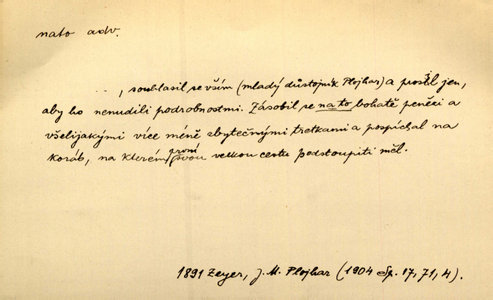 nato adv.
, souhlasil se vším (mladý důstojník Plojhar) a prosil jen,
aby ho nenudili podrobnostmi. Zásobil se na to bohatě penězi a
všelijakými více méně zbytečnými tretkami a pospíchal na
koráb, na kterém první svou velkou cestu podstoupiti měl.
1891 Zeyer, J. M. Plojhar (1904 Sp. 17, 71, 4).